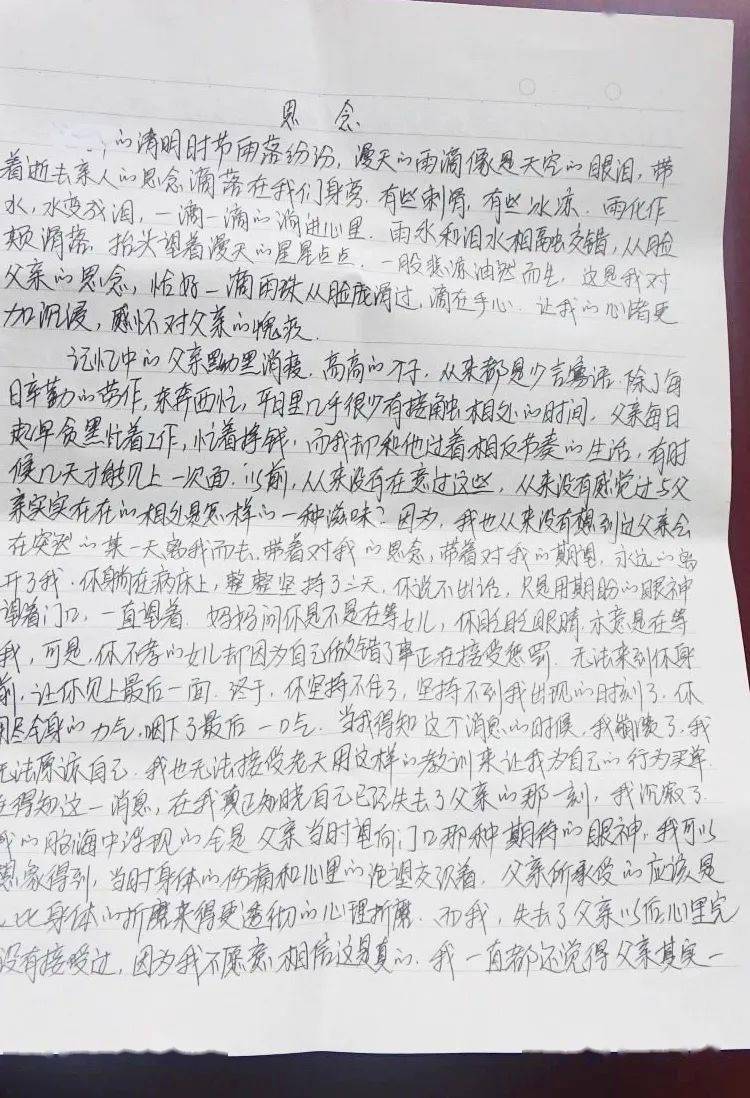 思念
的清明时节雨落纷纷，漫天的雨滴像是天空的眼泪，带
着逝去亲人的思念滴落在我们身旁．有些刺骨，有些冰凉．雨化作
水，水变成泪，一滴一滴的淌进心里．雨水和泪水相融交错，从脸
颊滑落．抬头望着漫天的星星点点．一股悲凉油然而生，这是我对
父亲的思念，恰好一滴雨珠从脸庞滑过，滴在手心．让我的心绪更
加沉浸，感怀对父亲的愧疚．
记忆中的父亲黝黑消瘦．高高的个子．从来都是少言寡语．除了每
日辛勤的劳作，东奔西忙，平日里几乎很少有接触相处的时间．父亲每日
起早贪黑忙着工作，忙着挣钱，而我却和他过着相反节奏的生活，有时
候几天才能见上一次面．以前，从来没有在意过这些，从来没有感觉过与父
亲实实在在的相处是怎样的一种滋味？因为，我也从来没有想到过父亲会
在突然的某一天离我而去．带着对我的思念，带着对我的期望．永远的离
开了我．你躺在病床上，整整坚持了三天，你说不出话，只是用期盼的眼神
望着门口，一直望着．妈妈问你是不是在等女儿，你眨眨眼睛．示意是在等
我，可是，你不孝的女儿却因为自己做错了事正在接受惩罚．无法来到你身
前，让你见上最后一面．终于，你坚持不住了，坚持不到我出现的时刻了．你
用尽全身的力气，咽下了最后一口气．当我得知这个消息的时候，我崩溃了．我
无法原谅自己．我也无法接受老天用这样的教训来让我为自己的行为买单．
在得知这一消息，在我真正知晓自己已经失去了父亲的那一刻，我沉寂了．
我的脑海中浮现的全是父亲当时望向门口那种期待的眼神，我可以
想象得到，当时身体的伤痛和心里的绝望交织着．父亲所承受的应该是
比身体的折磨来得更透彻的心理折磨．而我，失去了父亲以后心里完
没有接受过，因为我不愿意相信这是真的．我一直都还觉得父亲其实一